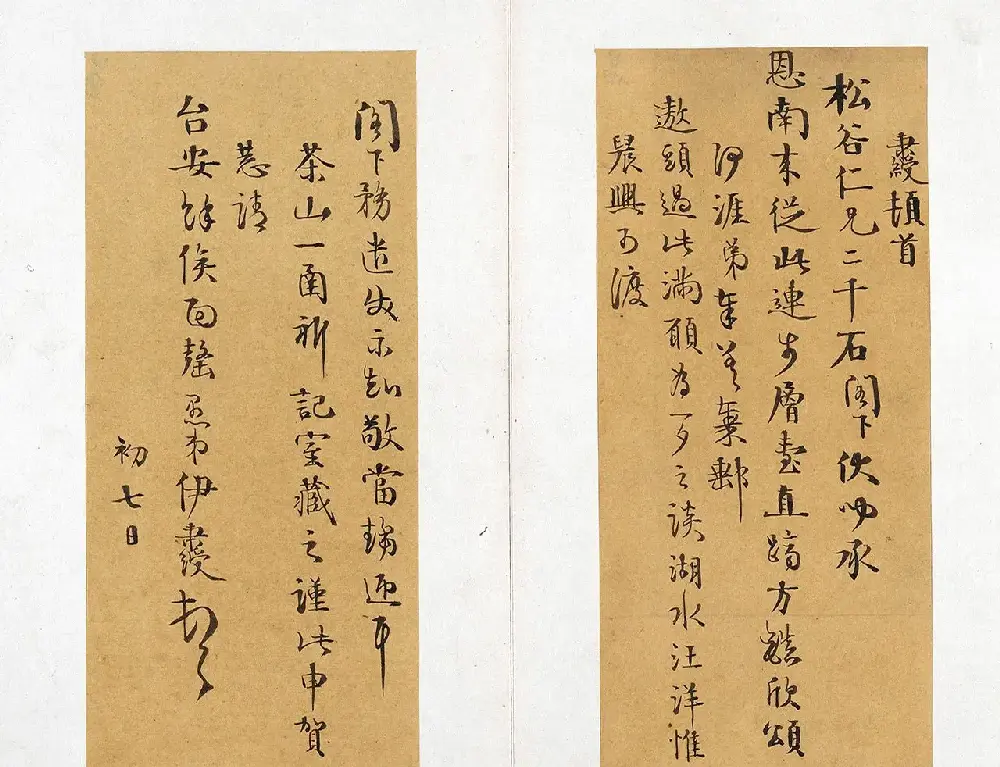 秉綬頓首
松谷仁兄二千石閣下伏承
恩南來從此連步層臺直躋方欣頌
何涯弟奉差
遨頭過此滿願為一夕之談湖水汪洋惟
晨興可渡
閣下務遣使示知敬當掃迎耳
茶山一圅祈記室藏之謹此申賀
恭請
台安餘俟面罄愚弟伊秉綬頓首
初七日